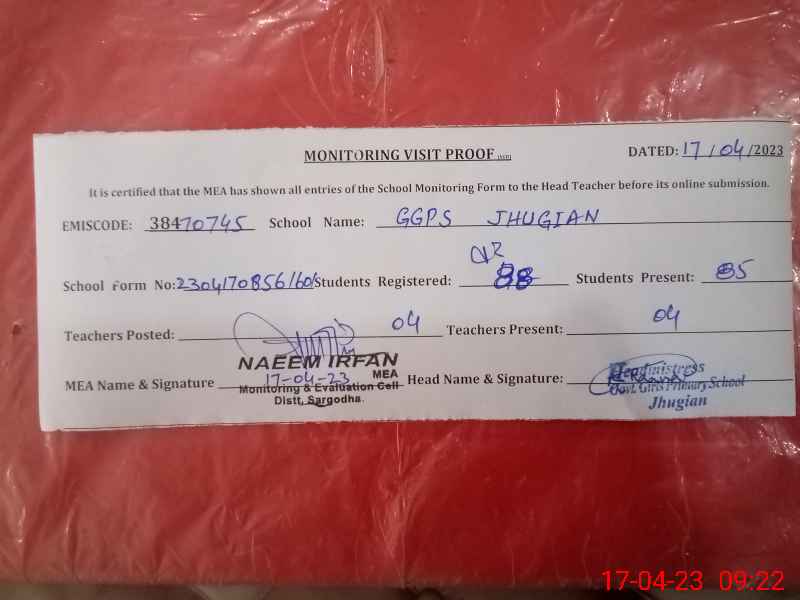 MONITORING VISIT PROOF
DATED: 17/04/2023
It is certified that the MEA has shown all entries of the School Monitoring Form to the Head Teacher before its online submission.
EMISCODE: 38470745 School Name: GGPS JHUGIAN
School Form No: Students Registered: 88 Students Present: 85
Teachers Posted: 04 Teachers Present: 04
NAEEM IRFAN
MEA
MEA Name & Signature 17-04-23 Head Name & Signature: Headmistress
Monitoring & Evaluation Cell Govt. Girls Primary School
Distt. Sargodha. Jhugian
17-04-23 09:22